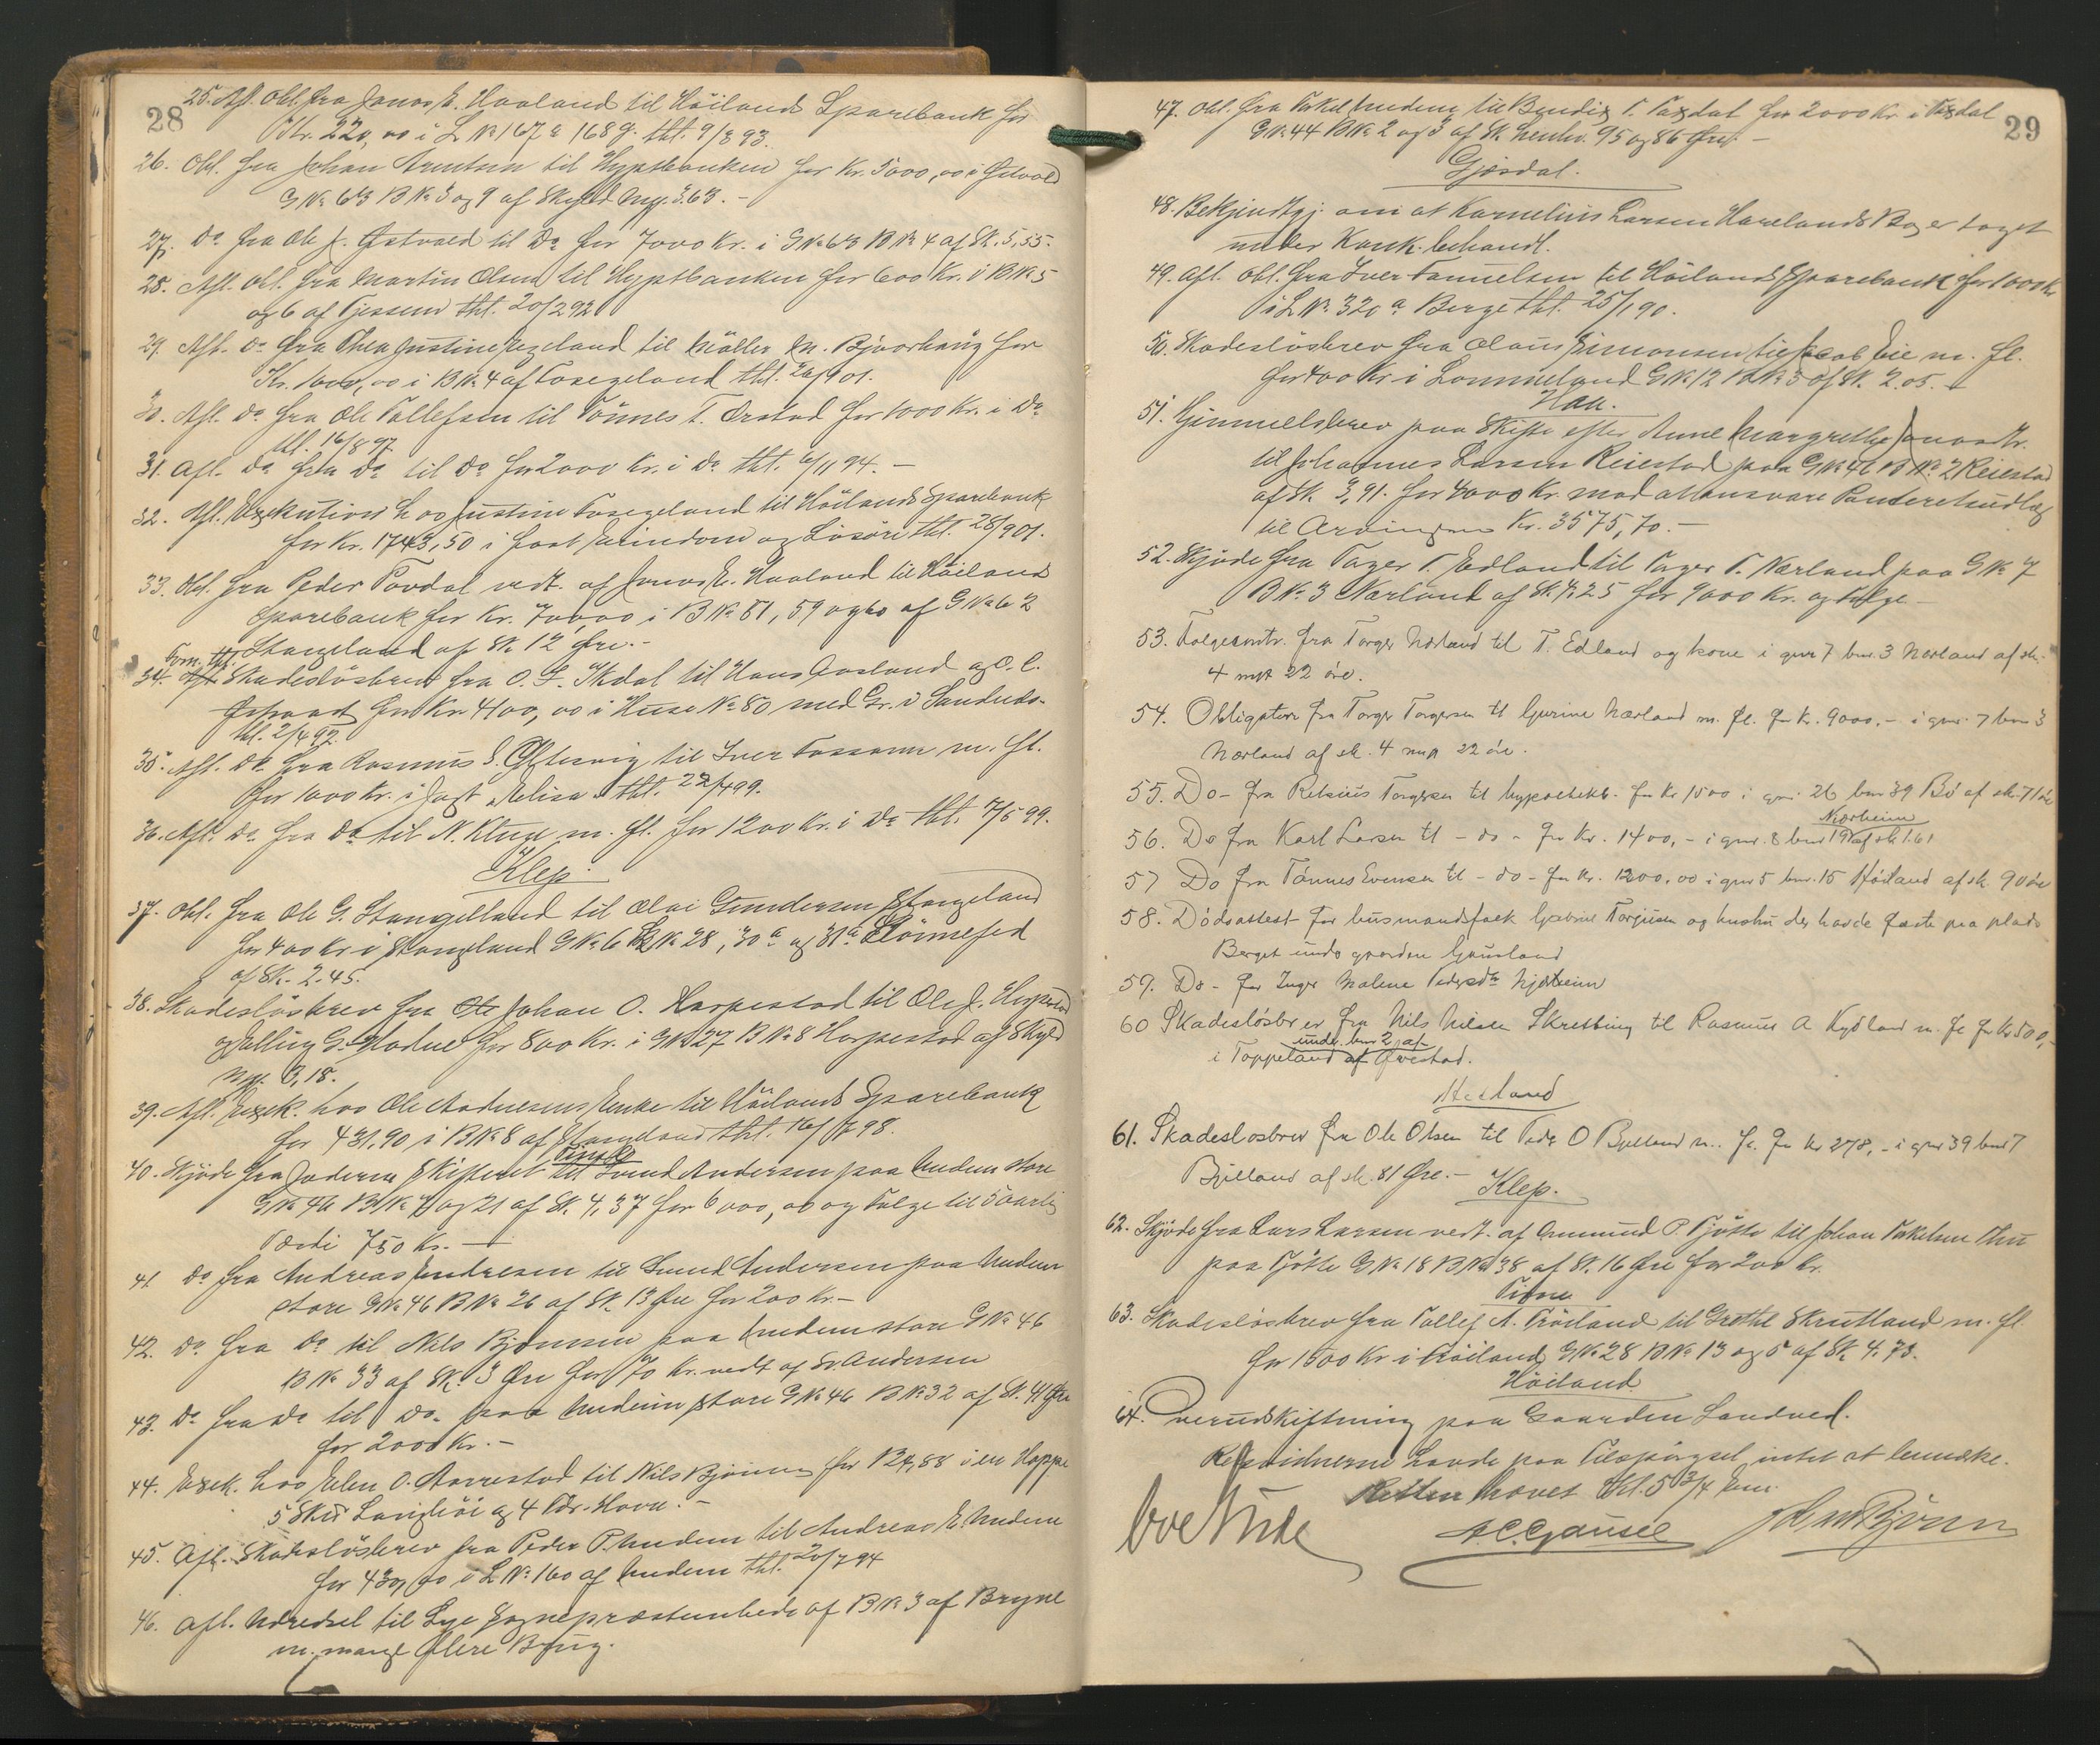 28
25. Afl. Obl. fra Jonas E. Haaland til Höilands Sparebank for
Kr. 220,00 i L No 167 a 168 g. thl. 9/3 93.
26. Obl. fra Johan Arntsen til Hypotbanken for Kr. 5000,00 i Østvold
G No 63 B No 3 og 9 af Skyld Mrk. 3.63. -
27. Do fra Ole J. Østvold til Do for 7000 Kr. i G No 63 B No 4 af Sk. 5,55.
28. Afl. Obl. fra Martin Olsen til Hypotbanken for 600 Kr. i B No 5
og 6 af Tjessem thl. 20/2 92
29. Afl. Do fra Thea Justine Fosegeland til Möller M. Bjoorhaug for
Kr. 1000,00 i B No 4 af Fosegeland thl. 20/9 01.
30. Afl. Do fra Ole Tollefsen til Tönnes T. Orstad for 1000 Kr. i Do
thl. 16/8 97
31. Afl. Do fra Do til Do for 2000 Kr. i Do thl. 6/11 94. -
32. Afl. Exekution hos Justine Fosegeland til Höilands Sparebank
for Kr. 1743,50 i fast Eiendom og Lösöre thl. 28/9 01.
33. Obl. fra Peder Tovdal vedt. af Jonas E. Haaland til Höiland
Sparebank for Kr. 7000,00 i B No 51, 59 og 60 af G No 62
Stangeland af Sk 12 Øre. -
Forn. thl.
34. Afl. Skadeslösbrev fra O. G. Skdal til Hans Aasland og O. C.
for Kr. 4400,00 i Huse No 80 med Gr. i Sandnes.
thl. 2/4 92.
35. Afl. Do fra Rasmus S. Oltesvig til Iver Fossann m. fl.
for 1000 Kr. i Jagt "Elise" thl. 22/4 99.
36. Afl. Do fra Do til N. Kluge m. fl. for 1200 Kr. i Do thl. 7/5 99.
Klep
37. Obl. fra Ole G. Stangelland til Olai Gundersen Stangeland
for 400 Kr i Stangeland G No 6 B No 28, 30 a og 31 a Lönnefed
af Sk. 2.45.
38. Skadeslösbrev fra Ole Johan O. Harpestad til Ole J. Harpestad
og Salling G. Hodne for 800 Kr. i G No 27 B No 8 Harpestad af Skyld
Mrk. 3,18.
39. Afl. Exek. hos Ole Andresens Enke til Höilands Sparebank
for 431.90 i B No 8 af Stangeland thl. 16/ 98.
Time
40. Skjöde fra Jæderens Skifteret til Svend Andersen paa Undem store
G No 46 B No og 21 af Sk. 4,37 for 6000,00 og Folge til 5aarlig
Værdi 750 Kr. -
41. Do fra Andreas Endresen til Svend Andersen paa Undem
store G No 46 B No 26 af Sk. 13 Øre for 200 Kr. -
42. Do fra Do til Nils Bjørnsen paa Undem store G No 46
B No 33 af Sk. 3 Øre for 70 Kr. vedt af Sv. Andersen
43. Do fra Do til Do. paa Undem store G No 46 B No 32 af Sk. 41 Øre
for 2000 Kr. -
44. Exek. hos Elen O. Aarrestad til Nils Bjönnes for 124,88 i en Hoppe
5 Skir Langhöi og 4 Tdr. Havre. -
45. Afl. Skadeslösbrev fra Peder P. Undem til Andreas E. Undem
for 430,00 i L No 160 af Undem thl. 20/7 94
46. Afl. Udredsel til Lye Sognepræstembede af B No 3 af Bryne
m. mange flere Brug.
29
47. Obl. fra Torkel Undem til Bendix T. Taxdal for 2000 Kr. i Taxdal
G No 44 B No 2 og 3 af Sk. henhv. 95 og 86 Øre -
Gjesdal.
48. Bekjendtgj. om at Kornelius Larsen Havelands Bo er taget
under Konk. behandl.
49. Afl. Obl. fra Iver Samuelsen til Höilands Sparebank for 1000 Kr
i L No. 320 a Berge thl. 25/1 90.
50. Skadeslösbrev fra Olaus Simonsen til Jakob Eie m. fl.
for 400 Kr i Lomeland G No 12 B No 3 af Sk. 2.05. -
Haa.
51. Hjemmelsbrev paa Skifte efter Anne Margrethe Jonasdtr.
til Johannes Larsen Reiestad paa G No 46 B No 2 Reiestad
af Sk 3,91. for 4000 Kr. mod at ansvare Panteretudlæg
til Arvingerne Kr. 3575,70. -
52. Skjöde fra Tager T. Edland til Tager T. Nærland paa G No 7
B No 3 Nærland af Sk. 4.25 for 9000 Kr. og Følge -
53. Folgekontr. fra Torger Nærland til T. Edland og kone i gnr 7 bnr. 3 Nærland af sk.
4 mrk 22 öre.
54. Obligation fra Torger Torgersen til Gurine Nærland m. fl. for Kr. 9000,- i gnr. 7 bnr 3
Nærland af sk. 4 mrk 22 öre.
55. Do - fra Reinius Torgersen til hypothekb. for Kr 1500 i gnr 26 bnr 39 Bö af sk. 71 öre
Nærheim
56. Do fra Karl Larsen til - do - for Kr. 1400,- i gnr. 8 bnr 19 af sk 1.61
57 Do fra Tönnes Evensen til - do - for Kr. 1200,00 i gnr 5 bnr. 15 Höiland af sk. 90 öre
58. Dödsattest for husmandsfolk Gabriel Torjusen og hustru der havde fæste paa plads
Berget under gaarden Grusland
59. Do - for Inger Malene Pedersdtr Njærheim
60 Skadeslösbrev fra Nils Nilsen Skretting til Rasmus A Kydland m. fl. for Kr 500,-
under bnr 2 af
i Toppeland af Øvrestad.
Hetland
61. Skadeslosbrev fra Ole Olsen til Peder O Bjelland m. fl. for kr 278,- i gnr 39 bnr 7
Bjelland af sk. 81 Øre. -
Klep.
62. Skjöde fra Lars Larsen vedt. af Ommund P. Tjötte til Johan Torkelsen Thu
paa Tjötte G No 18 B No 38 af Sk. 16 Øre for 200 Kr.
Time
63. Skadeslösbrev fra Tollef A. Fröiland til Grethe Skrutland m. fl.
for 1500 Kr i Fröiland G No 28 B No 13 og 5 af Sk. 4.73.
Höiland
64. Overudskiftning paa Gaarden Sandved.
Retsvidnerne havde paa Tilspörgsel intet at bemærke.
Retten hævet Kl. 5 3/4 Em.
A. C. Gausel